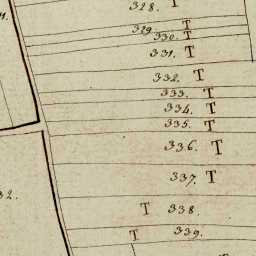 328. T
329. T
330. T
331. T
332. T
333. T
334. T
335. T
336. T
337. T
T 338.
T 339.